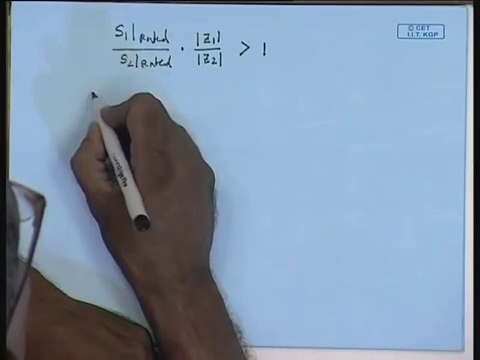 S₁|Rated / S₂|Rated · |Z₁| / |Z₂| > 1
© CET
I.I.T. KGP